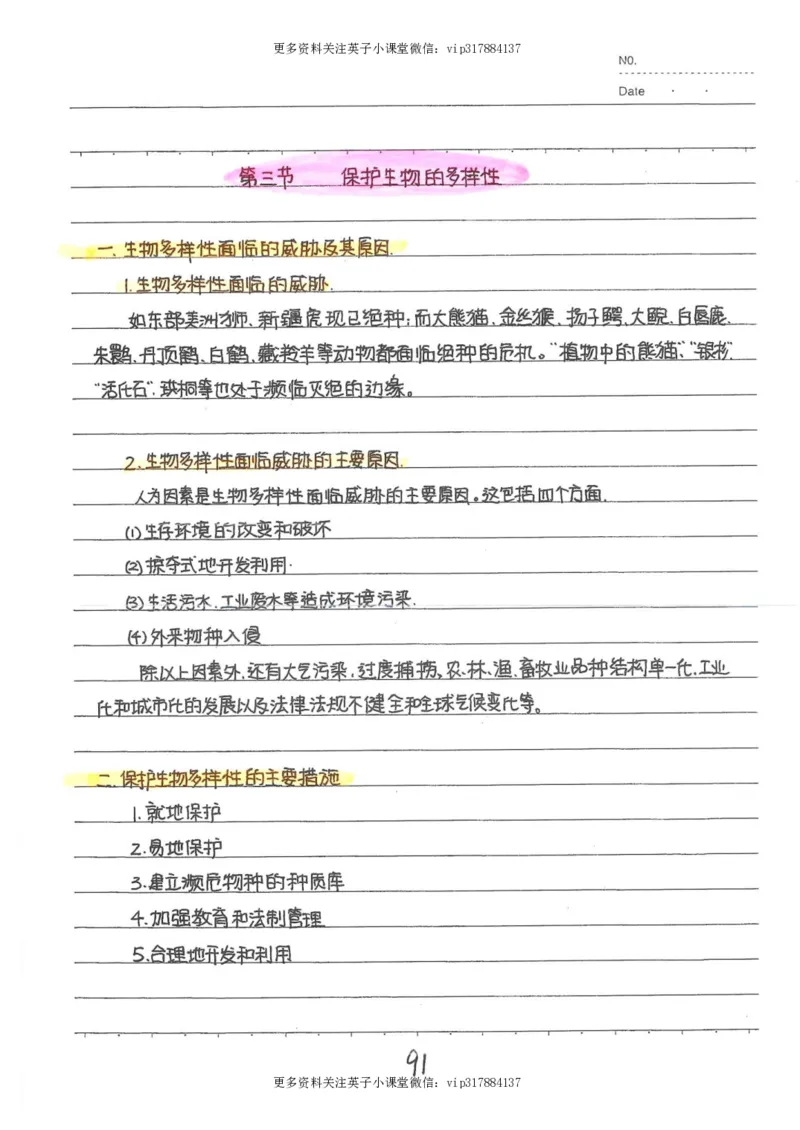 更多资料关注英子小课堂微信：vip317884137
NO.
Date
第三节 保护生物的多样性
一.生物多样性面临的威胁及其原因.
1.生物多样性面临的威胁.
如东部美洲狮、新疆虎现已绝种；而大熊猫、金丝猴、扬子鳄、大鸨、白唇鹿、
朱鹮、丹顶鹤、白鹤、藏羚羊等动物都面临绝种的危机。“植物中的熊猫”、“银杉”、
“活化石”、珙桐等也处于濒临灭绝的边缘。
2.生物多样性面临威胁的主要原因.
人为因素是生物多样性面临威胁的主要原因。这包括四个方面.
(1)生存环境的改变和破坏
(2)掠夺式地开发利用.
(3)生活污水、工业废水等造成环境污染.
(4)外来物种入侵
除以上因素外,还有大气污染,过度捕捞,农、林、渔、畜牧业品种结构单一化,工业
化和城市化的发展以及法律法规不健全和全球气候变化等。
二.保护生物多样性的主要措施
1.就地保护
2.易地保护
3.建立濒危物种的种质库
4.加强教育和法制管理
5.合理地开发和利用
91
更多资料关注英子小课堂微信：vip317884137